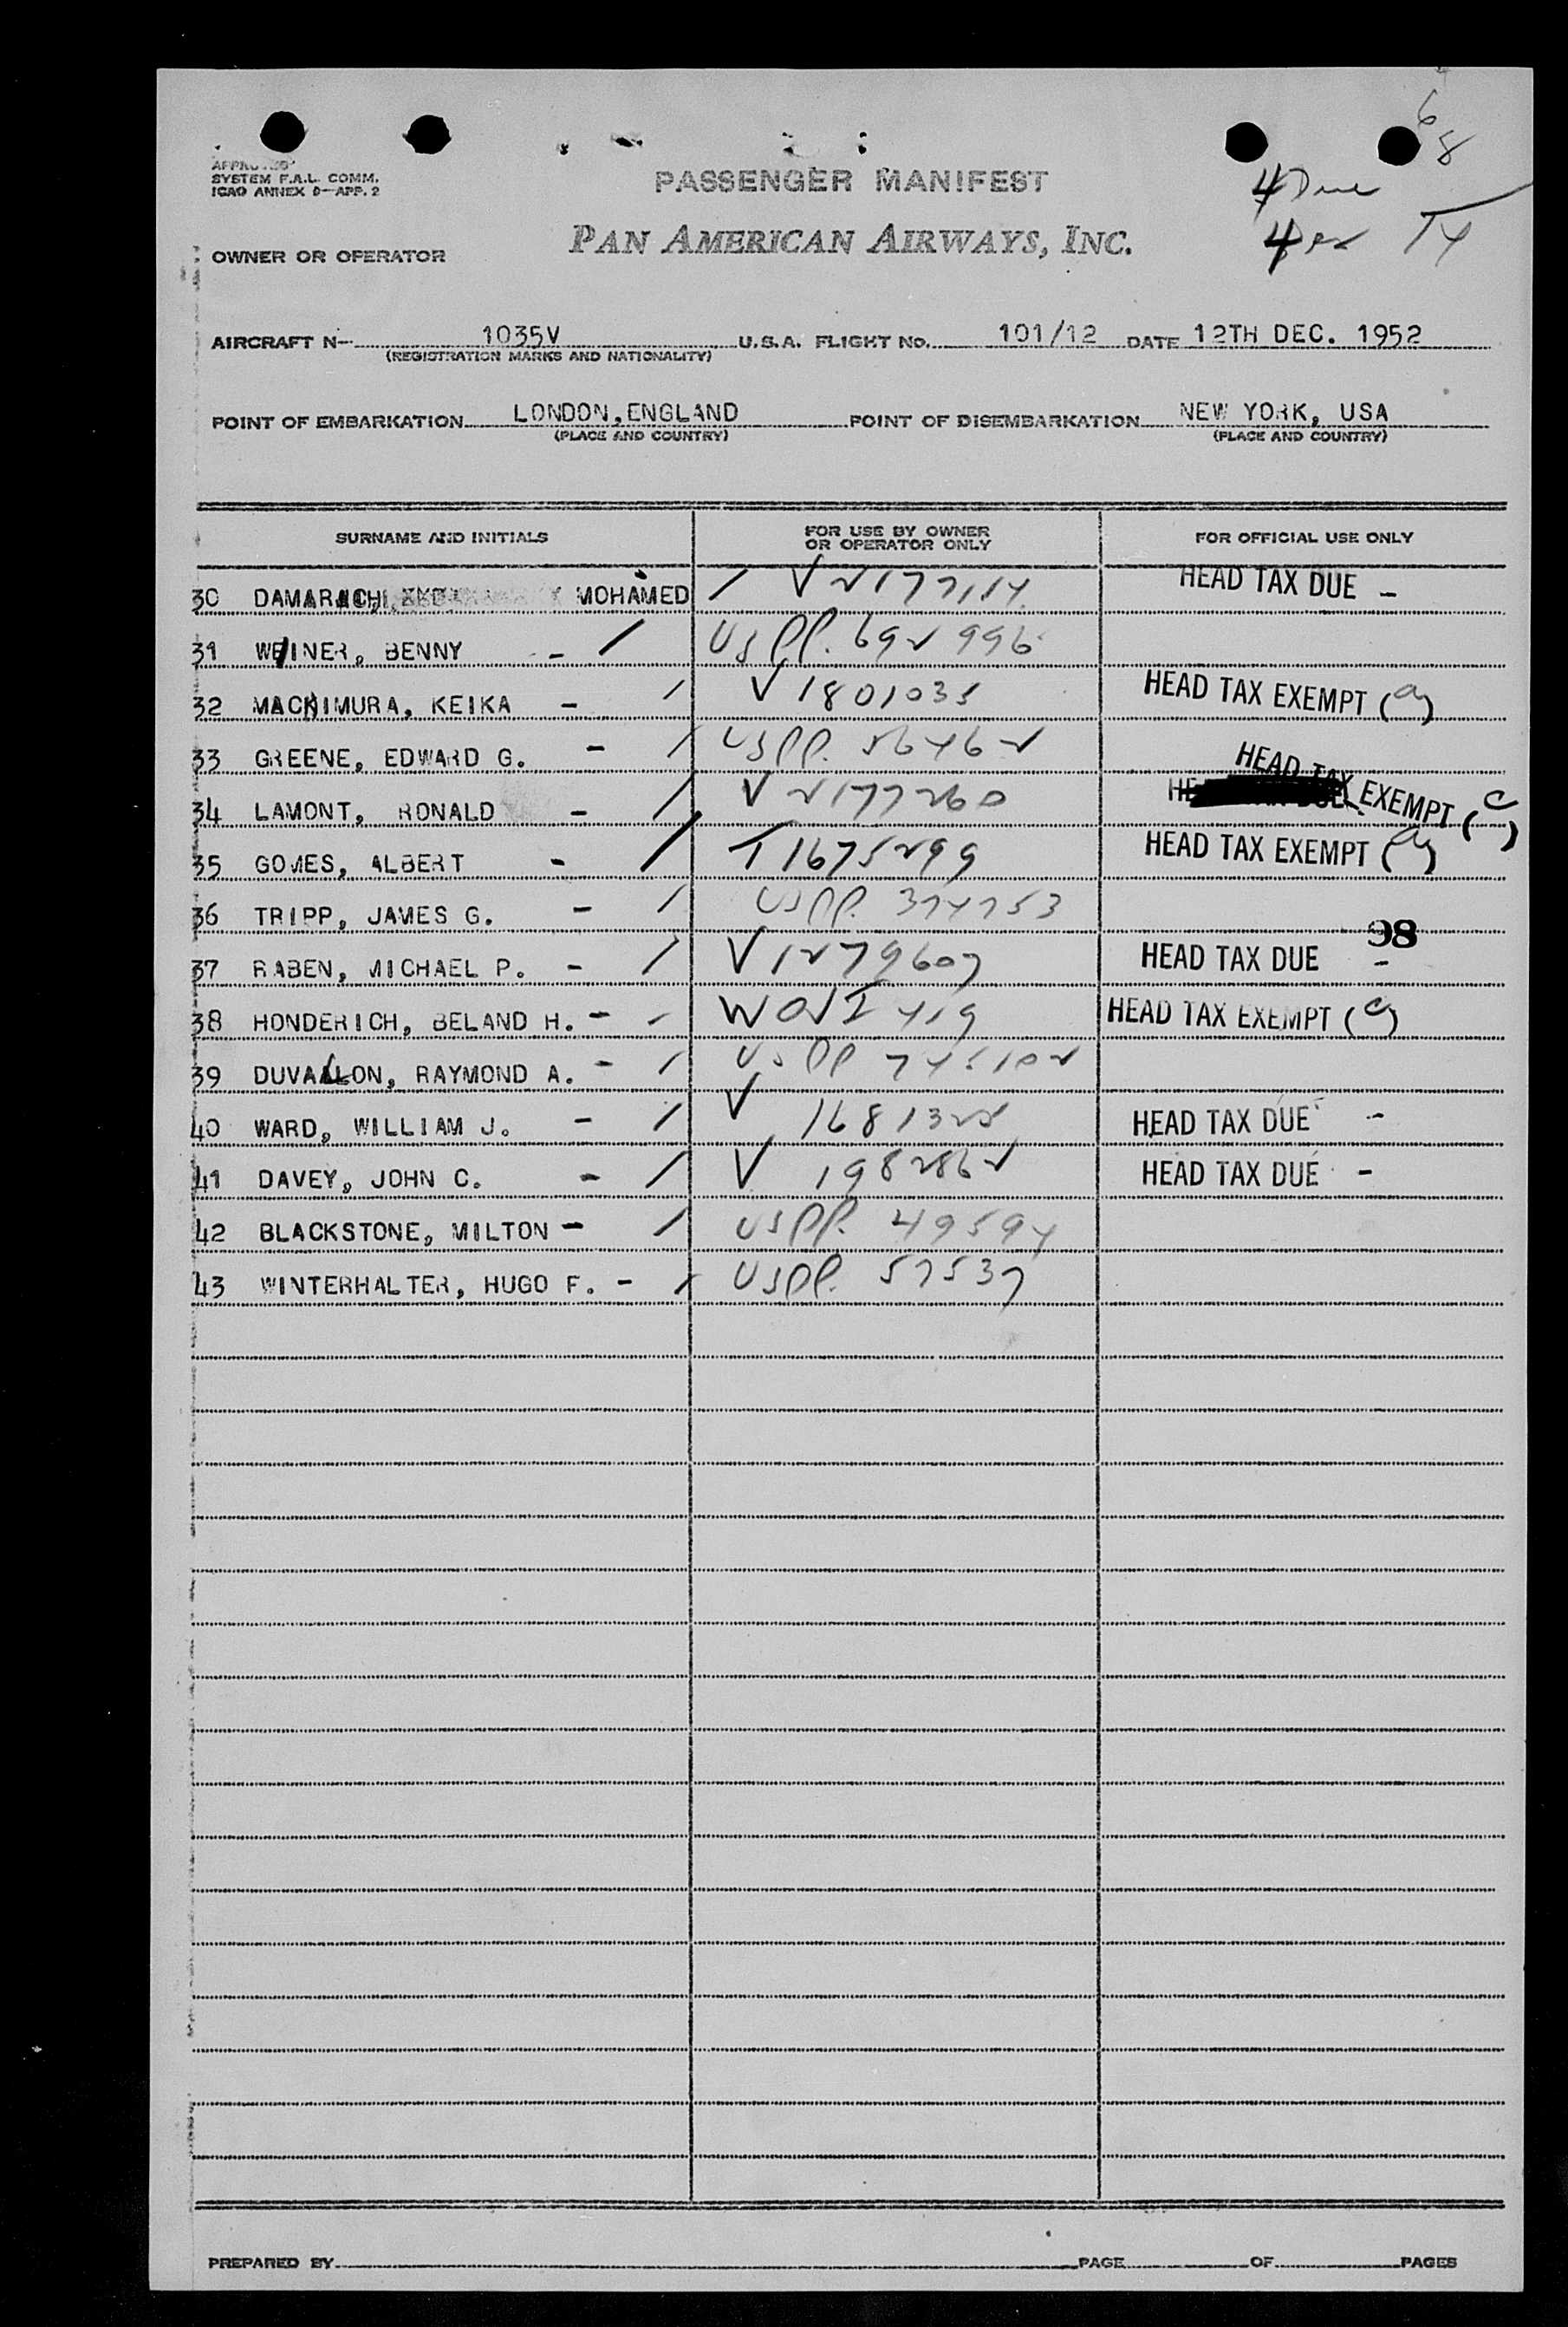 68
APPROVED
SYSTEM F.A.L. COMM.
ICAO ANNEX 9—APP. 2
PASSENGER MANIFEST
4 Due
4 ex
OWNER OR OPERATOR PAN AMERICAN AIRWAYS, INC.
AIRCRAFT N- 1035V U.S.A. FLIGHT NO. 101/12 DATE 12TH DEC. 1952
(REGISTRATION MARKS AND NATIONALITY)
POINT OF EMBARKATION LONDON, ENGLAND POINT OF DISEMBARKATION NEW YORK, USA
(PLACE AND COUNTRY) (PLACE AND COUNTRY)
SURNAME AND INITIALS FOR USE BY OWNER OR OPERATOR ONLY FOR OFFICIAL USE ONLY
30 DAMARACHI, MOHAMED / V2177114 HEAD TAX DUE -
31 WEINER, BENNY - / US PP. 692996
32 MACHIMURA, KEIKA - / V 1801035 HEAD TAX EXEMPT (a)
33 GREENE, EDWARD G. - / USPP. 56462
34 LAMONT, RONALD - / V 2177260 HEAD TAX EXEMPT (c)
35 GOMES, ALBERT - / T1675299 HEAD TAX EXEMPT (a)
36 TRIPP, JAMES G. - / USPP. 374753
98
37 RABEN, MICHAEL P. - / V1279607 HEAD TAX DUE -
38 HONDERICH, BELAND H. - / HEAD TAX EXEMPT (c)
39 DUVALLON, RAYMOND A. - / US PP 745102
40 WARD, WILLIAM J. - / V 1681325 HEAD TAX DUE -
41 DAVEY, JOHN C. - / V 1982862 HEAD TAX DUE -
42 BLACKSTONE, MILTON - / USPP. 49594
43 WINTERHALTER, HUGO F. - / USPP. 57537
PREPARED BY PAGE OF PAGES